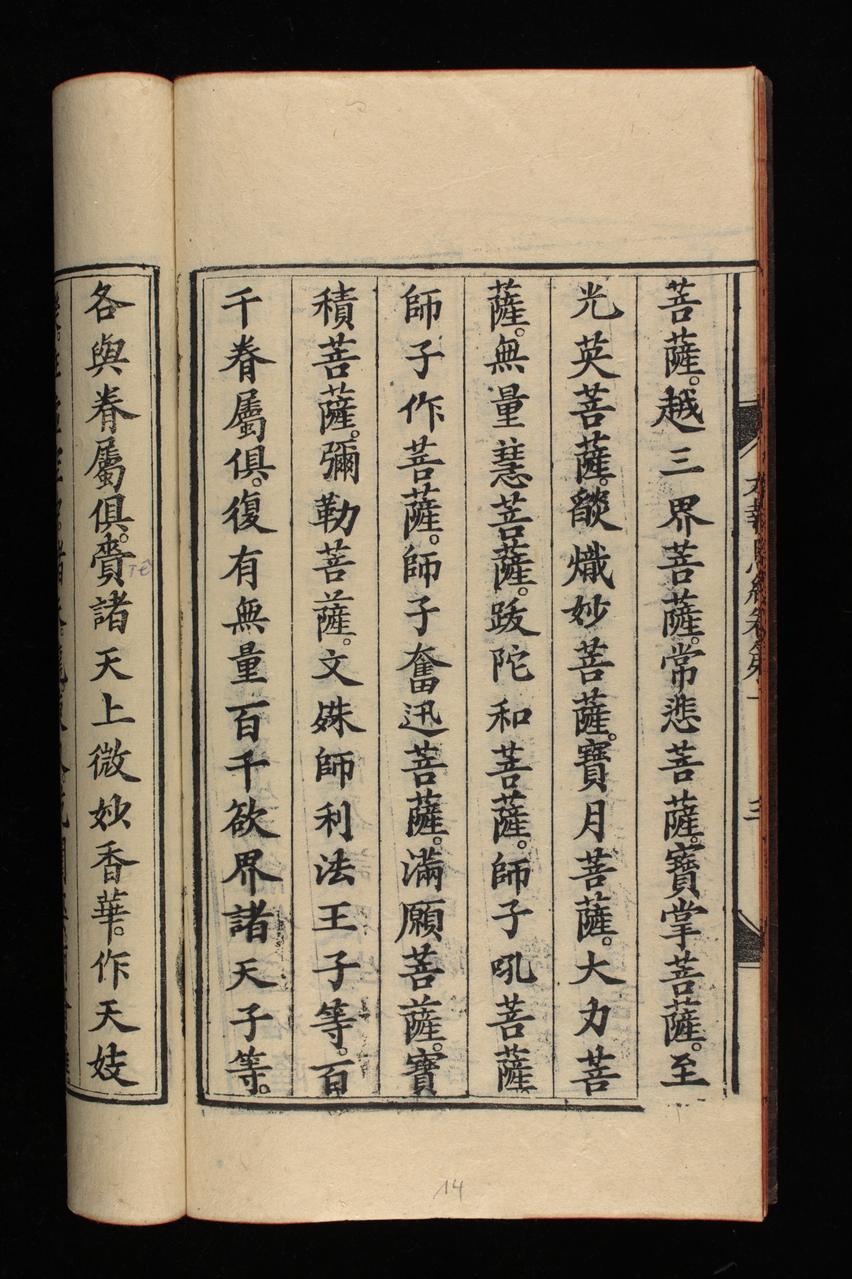 報恩經卷第一
三
菩薩。越三界菩薩。常悲菩薩。寶掌菩薩。至
光英菩薩。燄熾妙菩薩。寶月菩薩。大力菩
薩。無量慧菩薩。跋陀和菩薩。師子吼菩薩
師子作菩薩。師子奮迅菩薩。滿願菩薩。寶
積菩薩。彌勒菩薩。文殊師利法王子等。百
千眷屬俱。復有無量百千欲界諸天子等。
各與眷屬俱。賷諸天上微妙香華。作天妓
14